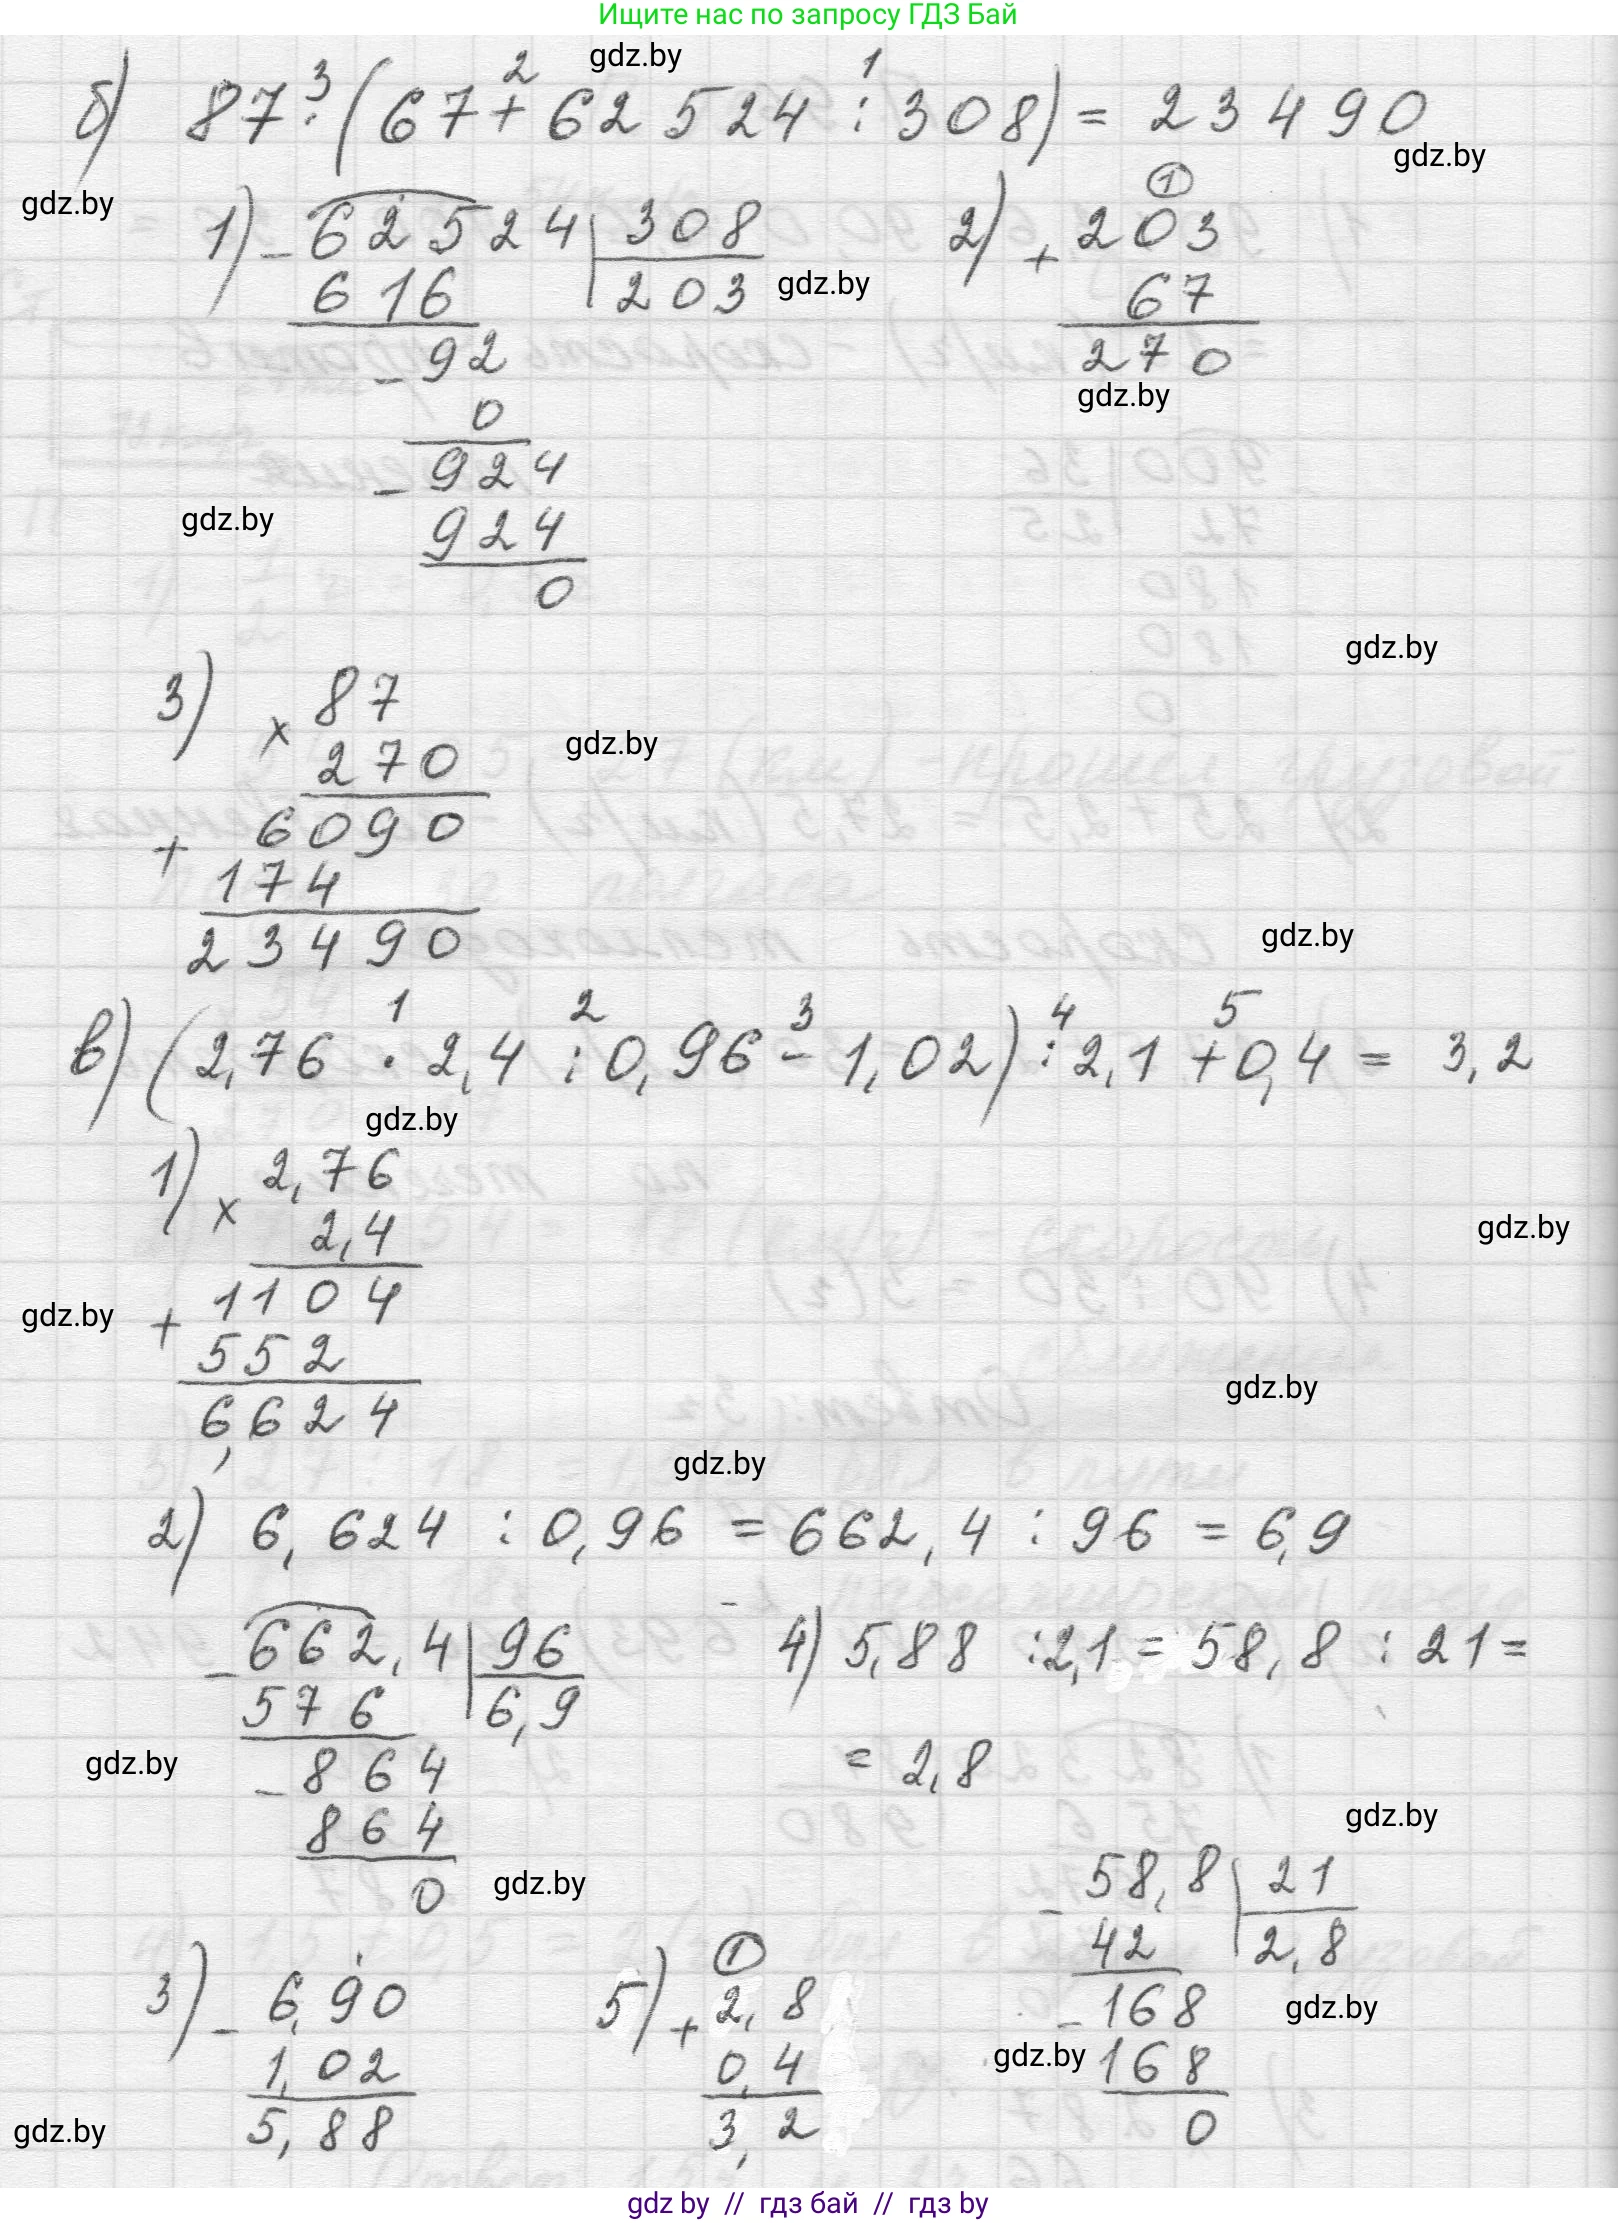 Ищите нас по запросу ГДЗ Бай
gdz.by
3 2 1
б) 87 · (67 + 62 524 : 308) = 23 490
gdz.by
gdz.by
1) - 62524 | 308
616 | 203
gdz.by
- 92
0
- 924
924
0
gdz.by
2) ①
+ 203
67
270
gdz.by
gdz.by
3) × 87
270
gdz.by
+ 6090
174
23490
gdz.by
1 2 3 4 5
в) (2,76 · 2,4 : 0,96 - 1,02) : 2,1 + 0,4 = 3,2
gdz.by
1) × 2,76
2,4
gdz.by
+ 1104
gdz.by
552
gdz.by
6,624
gdz.by
2) 6,624 : 0,96 = 662,4 : 96 = 6,9
- 662,4 | 96
576 | 6,9
gdz.by
- 864
864
0
gdz.by
4) 5,88 : 2,1 = 58,8 : 21 =
= 2,8
gdz.by
- 58,8 | 21
42 | 2,8
- 168
gdz.by
168
gdz.by
0
3) - 6,90
1,02
5,88
gdz.by
5) ①
+ 2,8
0,4
3,2
gdz by // гдз бай // гдз by